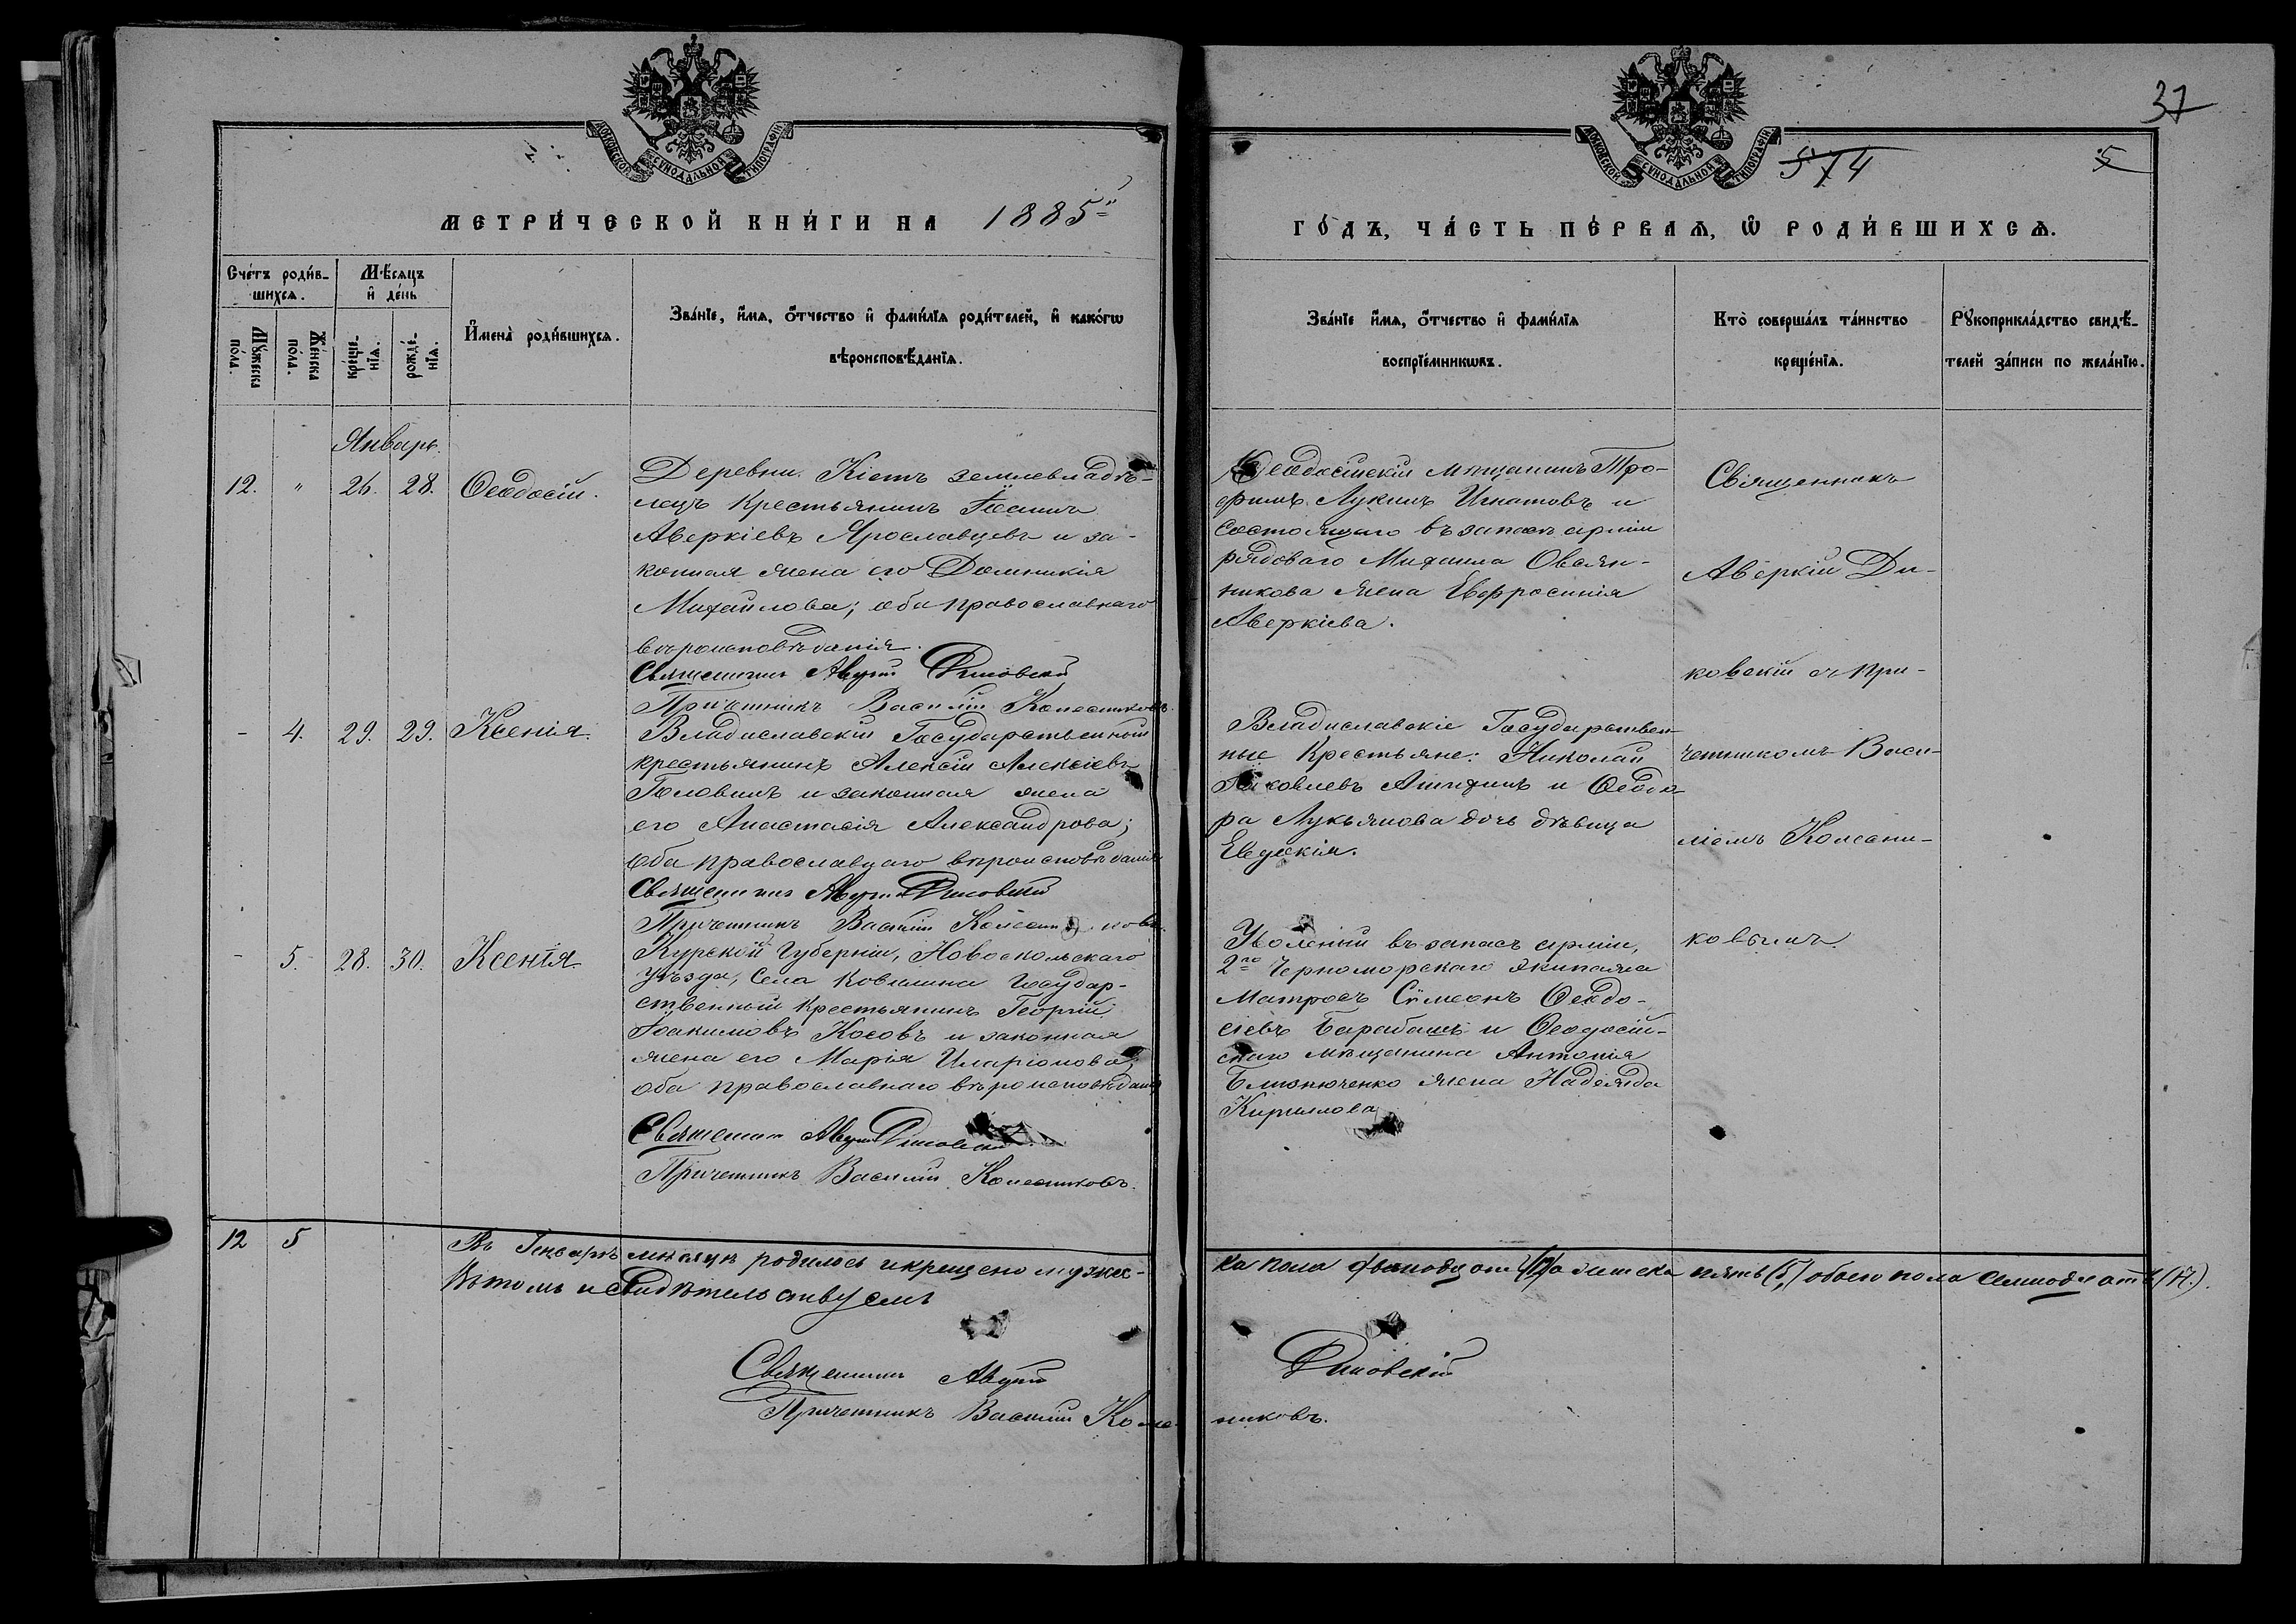 37
МОСКОВСКОЙ СѴНОДАЛЬНОЙ ТИПОГРАФІИ
МОСКОВСКОЙ СѴНОДАЛЬНОЙ ТИПОГРАФІИ
574
5
МЕТРИ́ЧЕСКОЙ КНИ́ГИ НА 1885й
ГО́ДЪ, ЧА́СТЬ ПЕ́РВАѦ, Ѡ РОДИ́ВШИХСѦ.
Сче́тъ роди́в-
шихсѧ.
Мѣ́сѧцъ
и҆ де́нь
Мꙋ́жеска
по́ла.
Же́нска
по́ла.
креще́-
нїѧ.
рожде́-
нїѧ.
И҆мена̀ роди́вшихсѧ.
Зва́нїе, и҆́мѧ, ѻ҆́тчество и҆ фами́лїѧ роди́телей, и҆ како́гѡ
вѣроисповѣ́данїѧ.
Зва́нїе и҆́мѧ, ѻ҆́тчество и҆ фами́лїѧ
воспрїе́мникѡвъ.
Кто̀ соверша́лъ та́инство
креще́нїѧ.
Рꙋкоприкла́дство свидѣ́-
телей за́писи по жела́нїю.
Январь.
12. " 26. 28. Ѳеодосій.
Деревни Кіетъ землевладѣ-
лецъ Крестьянинъ Іоаннъ
Аверкіевъ Ярославцевъ и за-
конная жена его Домникія
Михайлова; оба православнаго
вѣроисповѣданія.
Священникъ Аверкій Диковскій
Причетникъ Василій Колесниковъ
Ѳеодосійскій мѣщанинъ Тро-
фимъ Лукинъ Игнатовъ и
состоящаго въ запасѣ арміи
рядоваго Михаила Овсян-
никова жена Евфросинія
Аверкіева.
Священникъ
Аверкій Ди-
ковскій съ при-
четникомъ Васи-
ліемъ Колесни-
ковымъ
- 4. 29. 29. Ксенія.
Владиславскій Государственный
крестьянинъ Алексій Алексіевъ
Головинъ и законная жена
его Анастасія Александрова;
оба православнаго вѣроисповѣданія
Священникъ Аверкій Диковскій
Причетникъ Василій Колесниковъ
Владиславскіе Государствен-
ные Крестьяне: Николай
Яковлевъ и Ѳеодо-
ра Лукьянова дочь дѣвица
Евдокія.
- 5. 28. 30. Ксенія
Курской Губерніи, Новоскольскаго
уѣзда, села Ковылина Государ-
ственный Крестьянинъ Георгій
Іоакимовъ Косовъ и законная
жена его Марія Иларіонова;
оба православнаго вѣроисповѣданія
Священникъ Аверкій Диковскій
Причетникъ Василій Колесниковъ.
Уволеный въ запасъ арміи,
2го Черноморскаго экипажа
Матросъ Сѵмеонъ Ѳеодо-
сіевъ Барабашъ и Ѳеодосій-
скаго мѣщанина Антонія
Близнюченко жена Надежда
Кирилова
12 5 Въ Генварѣ мѣсяцѣ родилось и крещено мужес-
ка пола двенадцать (12) а женска пять (5) обоего пола семнадцать (17).
Въ томъ и свидѣтельствуемъ
Священникъ Аверкій Диковскій
Причетникъ Василій Колесниковъ.